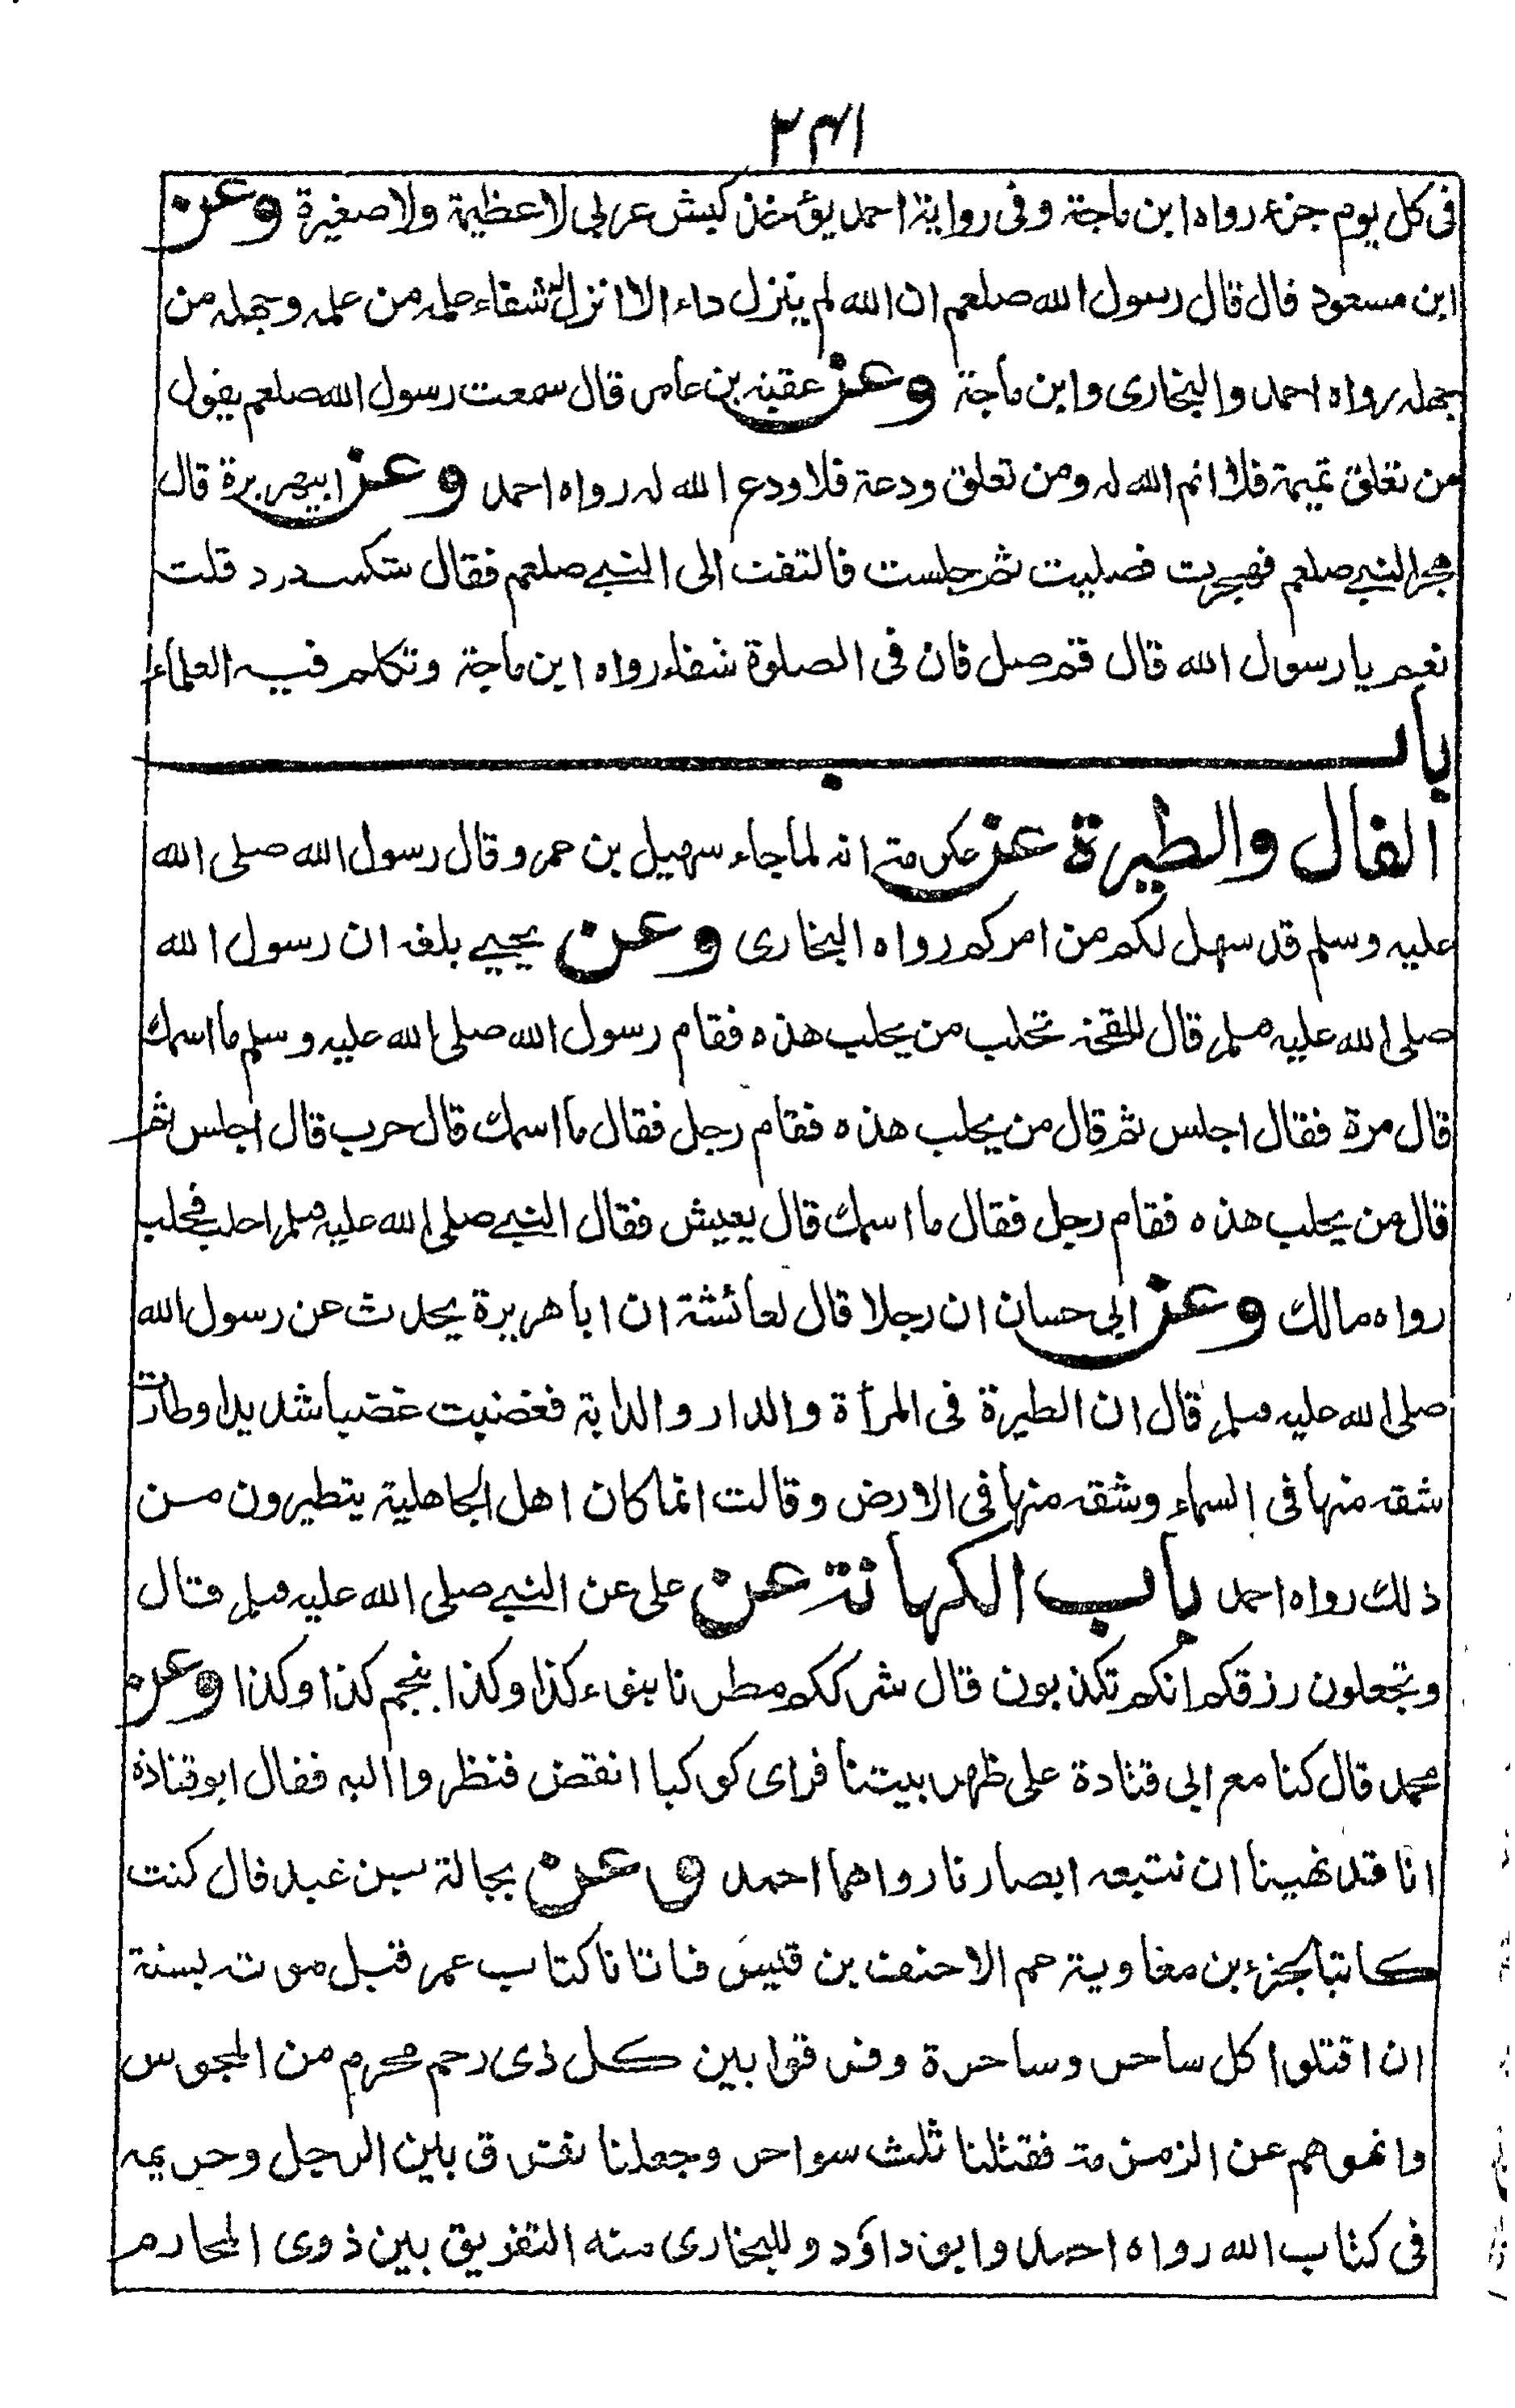 ٢٣٤١
في كل يوم جزء رواه ابن ماجة وفي رواية احمد يؤخذ كبش عربي لا عظيمة ولا صغيرة وعن
ابن مسعود قال قال رسول الله صلعم ان الله لم ينزل داء الا انزل له شفاء علمه من علمه وجهله من
جهله رواه احمد والبخارى وابن ماجة وعن عقبة بن عامر قال سمعت رسول الله صلعم يقول
من تعلق تميمة فلا اتم الله له ومن تعلق ودعة فلا ودع الله له رواه احمد وعن ابيهريرة قال
هجر النبي صلعم فهجرت فصليت ثم جلست فالتفت الى النبي صلعم فقال شكسدرد قلت
نعم يا رسول الله قال قم صل فان في الصلوة شفاء رواه ابن ماجة وتكلم فيه العلماء
باب
الفال والطيرة عن عكرمة انه لما جاء سهيل بن عمرو قال رسول الله صلى الله
عليه وسلم قد سهل لكم من امركم رواه البخارى وعن يحيى بلغه ان رسول الله
صلى الله عليه وسلم قال للقحة تحلب من يحلب هذه فقام رسول الله صلى الله عليه وسلم ما اسمك
قال مرة فقال اجلس ثم قال من يحلب هذه فقام رجل فقال ما اسمك قال حرب قال اجلس ثم
قال من يحلب هذه فقام رجل فقال ما اسمك قال يعيش فقال النبي صلى الله عليه وسلم احلب فحلب
رواه مالك وعن ابي حسان ان رجلا قال لعائشة ان ابا هريرة يحدث عن رسول الله
صلى الله عليه وسلم قال ان الطيرة في المرأة والدار والدابة فغضبت غضبا شديدا وطارت
شقه منها في السماء وشقه منها في الارض وقالت انما كان اهل الجاهلية يتطيرون من
ذلك رواه احمد باب الكهانة عن علي عن النبي صلى الله عليه وسلم قال
وتجعلون رزقكم انكم تكذبون قال شرككم مطرنا بنوء كذا وكذا بنجم كذا وكذا وعن
محمد قال كنا مع ابي قتادة على ظهر بيتنا فراى كوكبا انقض فنظروا اليه فقال ابو قتادة
انا قد نهينا ان نتبعه ابصارنا رواهما احمد وعن بجالة بن عبد قال كنت
كاتبا لجزء بن معاوية عم الاحنف بن قيس فاتانا كتاب عمر قبل موته بسنة
ان اقتلوا كل ساحر وساحرة وفرقوا بين كل ذي رحم محرم من المجوس
وانهوهم عن الزمزمة فقتلنا ثلث سواحر وجعلنا نفرق بين الرجل وحريمه
في كتاب الله رواه احمد وابو داؤد وللبخارى منه التفريق بين ذوى المحارم